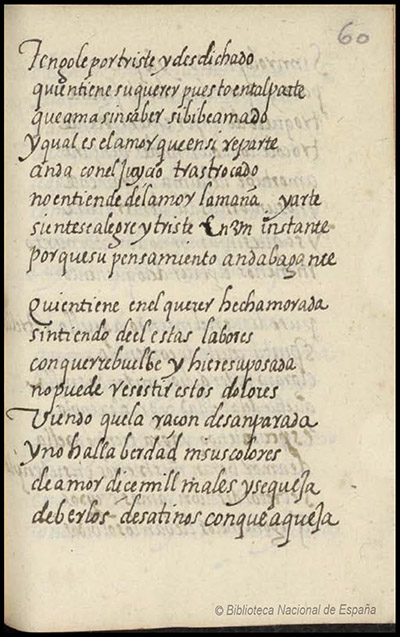 60
Tengole por triste y desdichado
quien tiene su querer puesto en tal parte
que ama sin saber si bibe amado
y qual es el amor que en si reparte
anda con el juyçio trastrocado
no entiende del amor la maña y arte
sientese alegre y triste En Vm instante
porque su pensamiento anda bagante
Quien tiene en el querer hecha morada
sintiendo de el estas labores
con que rrebuelbe y hiere su posada
no puede resestir estos dolores
Viendo que la raçon desanparada
y no halla berdad in sus colores
de amor dice mill males y se quexa
de ber los desatinos con que aquexa
© Biblioteca Nacional de España